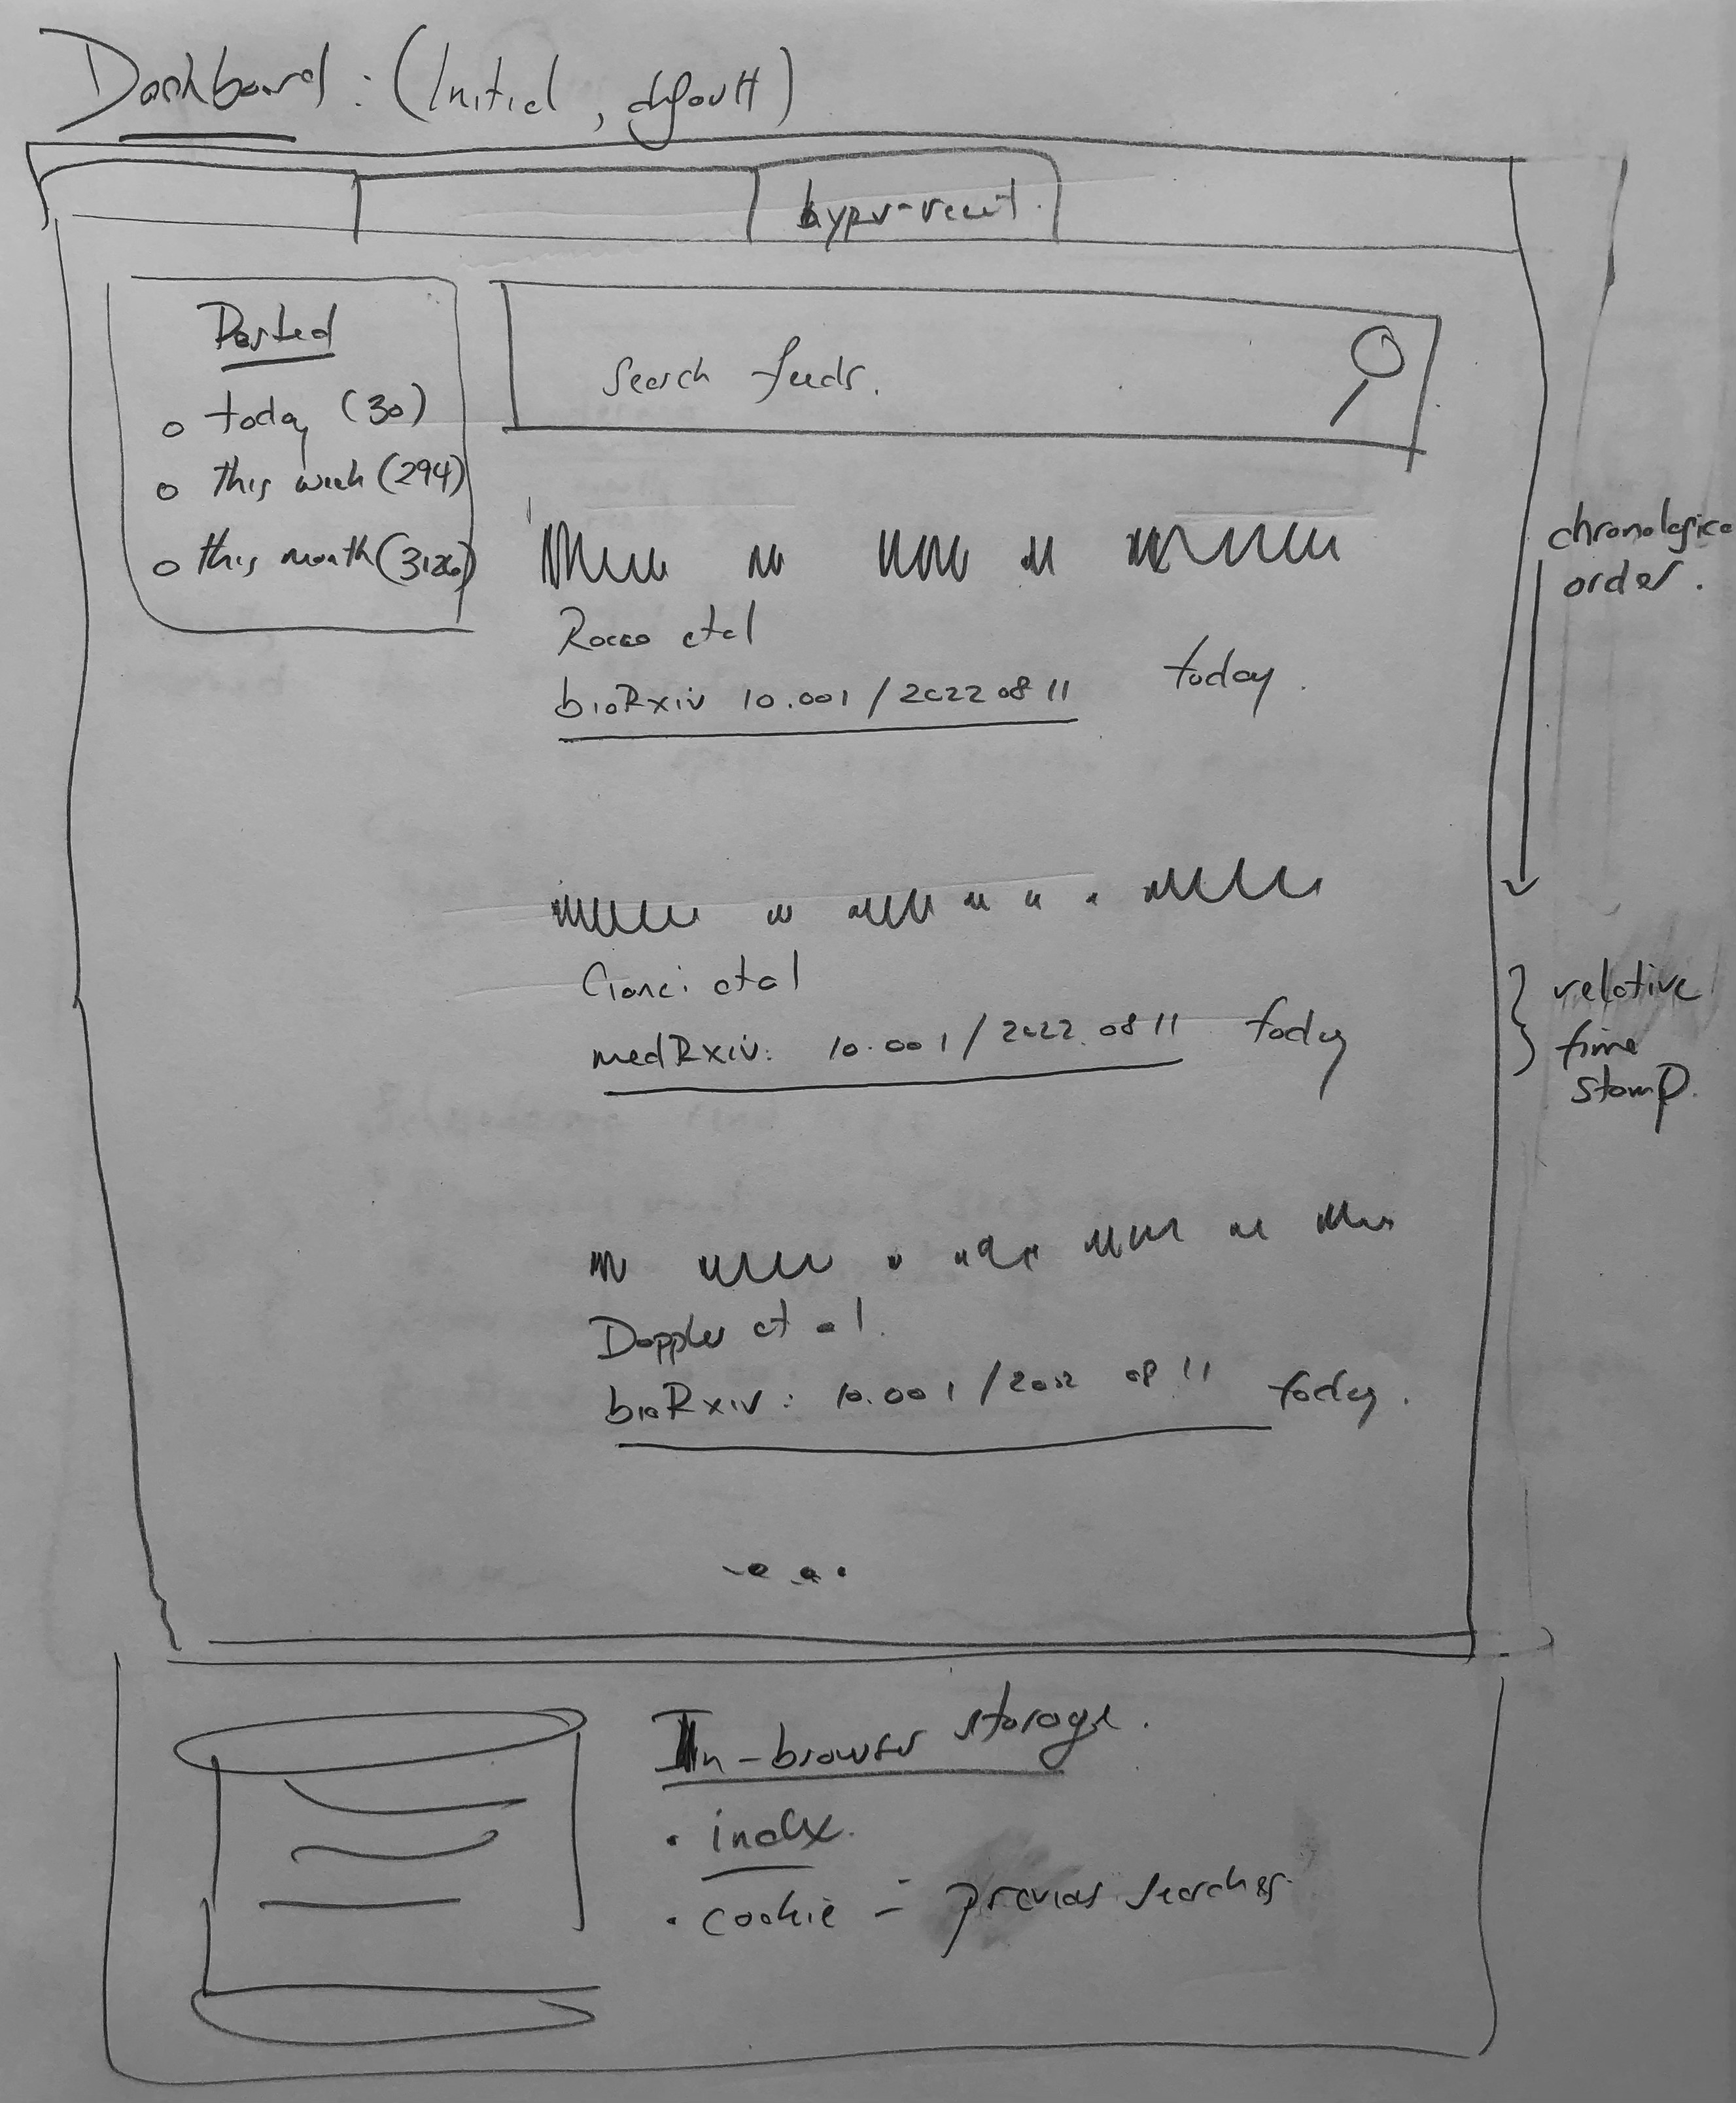 Dashboard : (Initial, default)
hyper-recent.
Posted
today (30)
this week (294)
this month (3126)
search feeds.
Rocco et al
bioRxiv 10.001 / 2022 08 11
today.
Cianci et al
medRxiv: 10.001 / 2022 08 11
today
Doppler et al.
bioRxiv : 10.001 / 2022 08 11
today.
...
chronologica
order.
relative
time
stamp.
In-browser storage.
• index.
• cookie - previous searches.